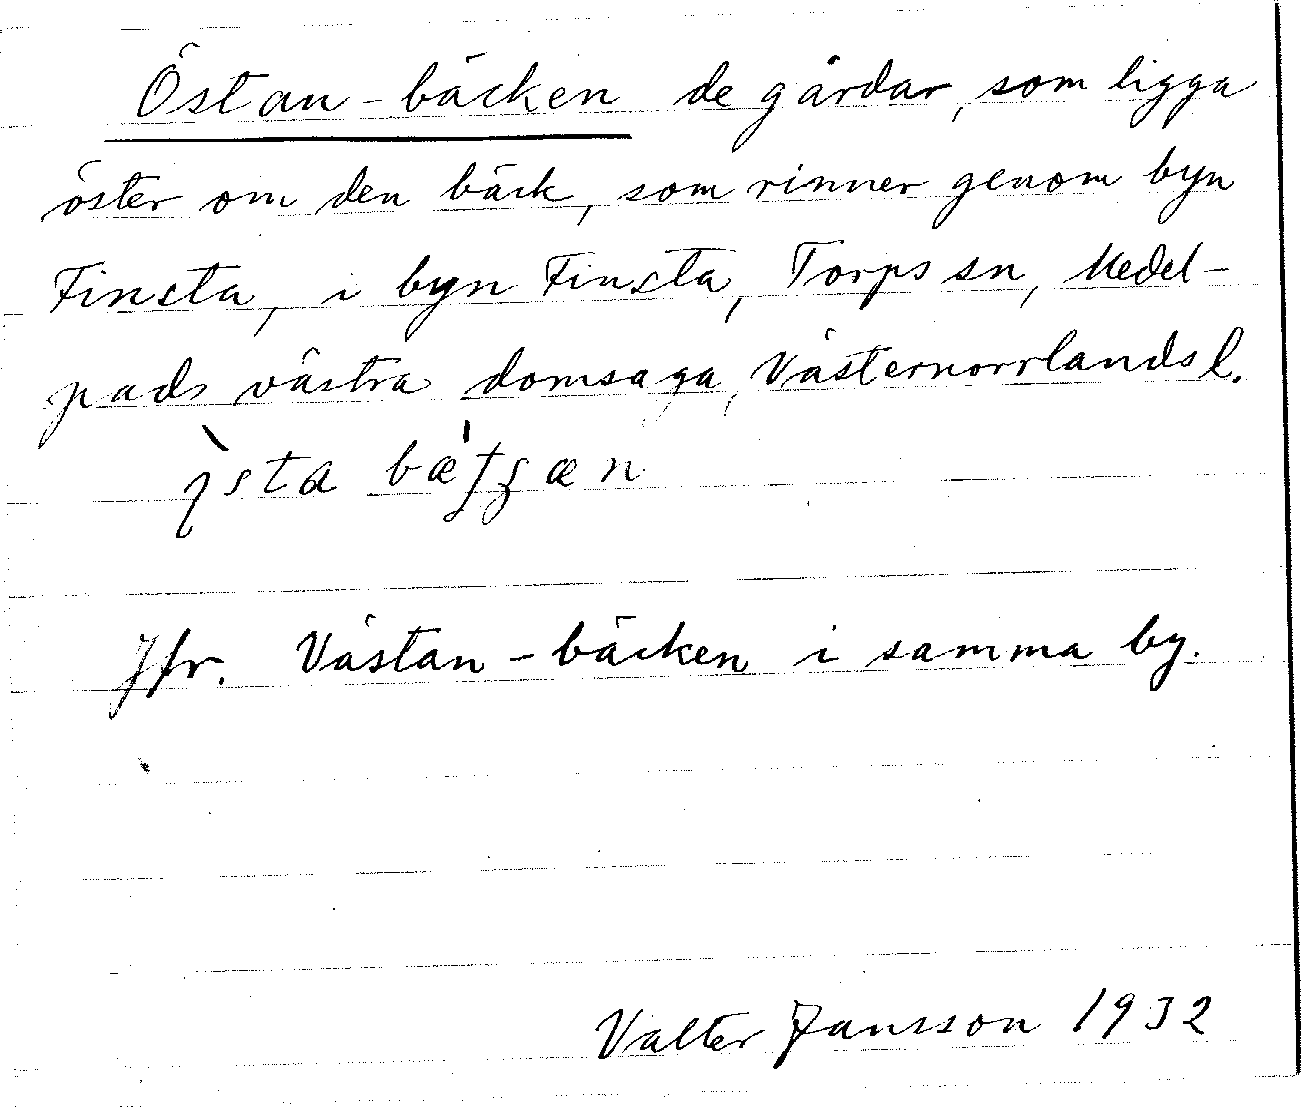 Östan-bäcken de gårdar, som ligga
öster om den bäck, som rinner genom byn
Finsta, i byn Finsta, Torps sn, Medel-
pads västra domsaga, Västernorrlands l.
Jfr. Västan-bäcken i samma by.
Valter Jansson 1932